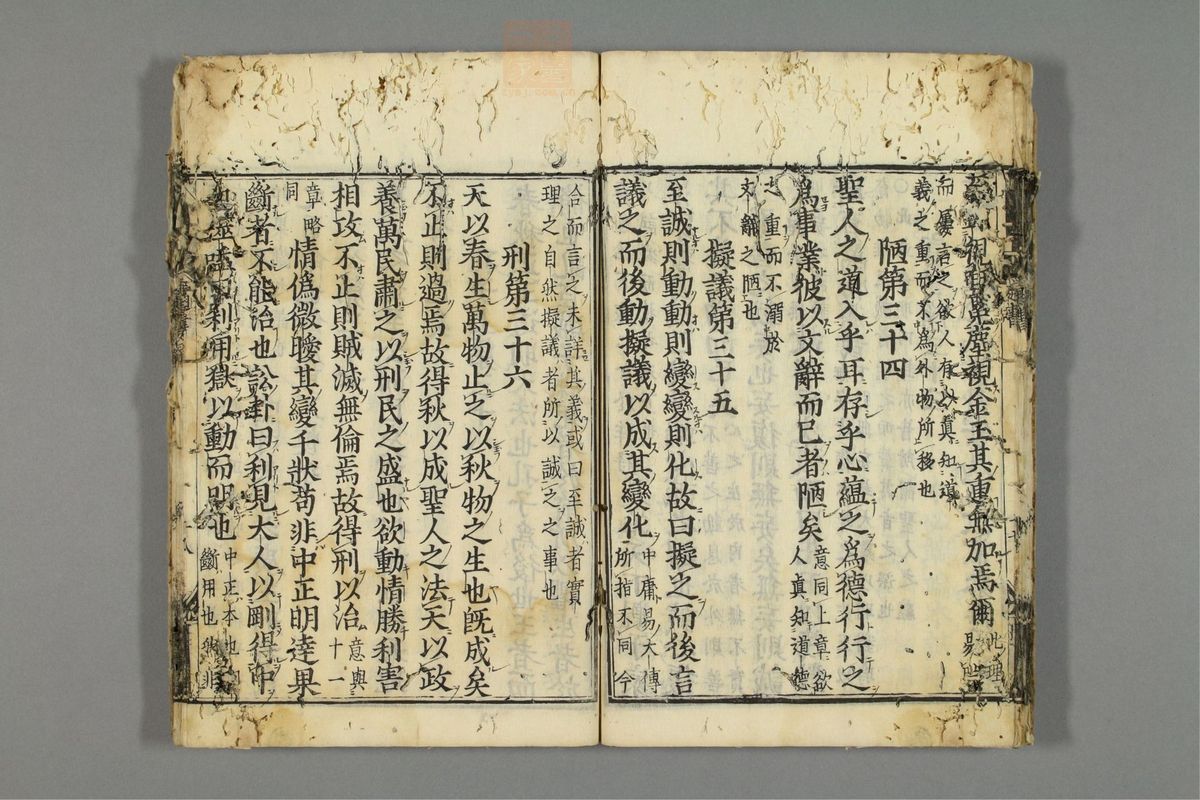 視 塵視金玉其重無加焉爾 此理
易
而屢言之欲人有以真知道
義之重而不爲外物所移也
陋第三十四
聖人之道入乎耳存乎心蘊之爲德行行之
爲事業彼以文辭而已者陋矣 意同上章欲
人真知道德
之重而不溺於
文辭之陋也
擬議第三十五
至誠則動動則變變則化故曰擬之而後言
議之而後動擬議以成其變化 中庸易大傳
所指不同今
合而言之未詳其義或曰至誠者實
理之自然擬議者所以誠之之事也
刑第三十六
天以春生萬物止之以秋物之生也既成矣
不止則過焉故得秋以成聖人之法天以政
養萬民肅之以刑民之盛也欲動情勝利害
相攻不止則賊滅無倫焉故得刑以治 意與
十一
章略
同
情僞微曖其變千狀苟非中正明達果
斷者不能治也訟卦曰利見大人以剛得中
也噬嗑曰利用獄以動而明也 中正本也
斷用也然非